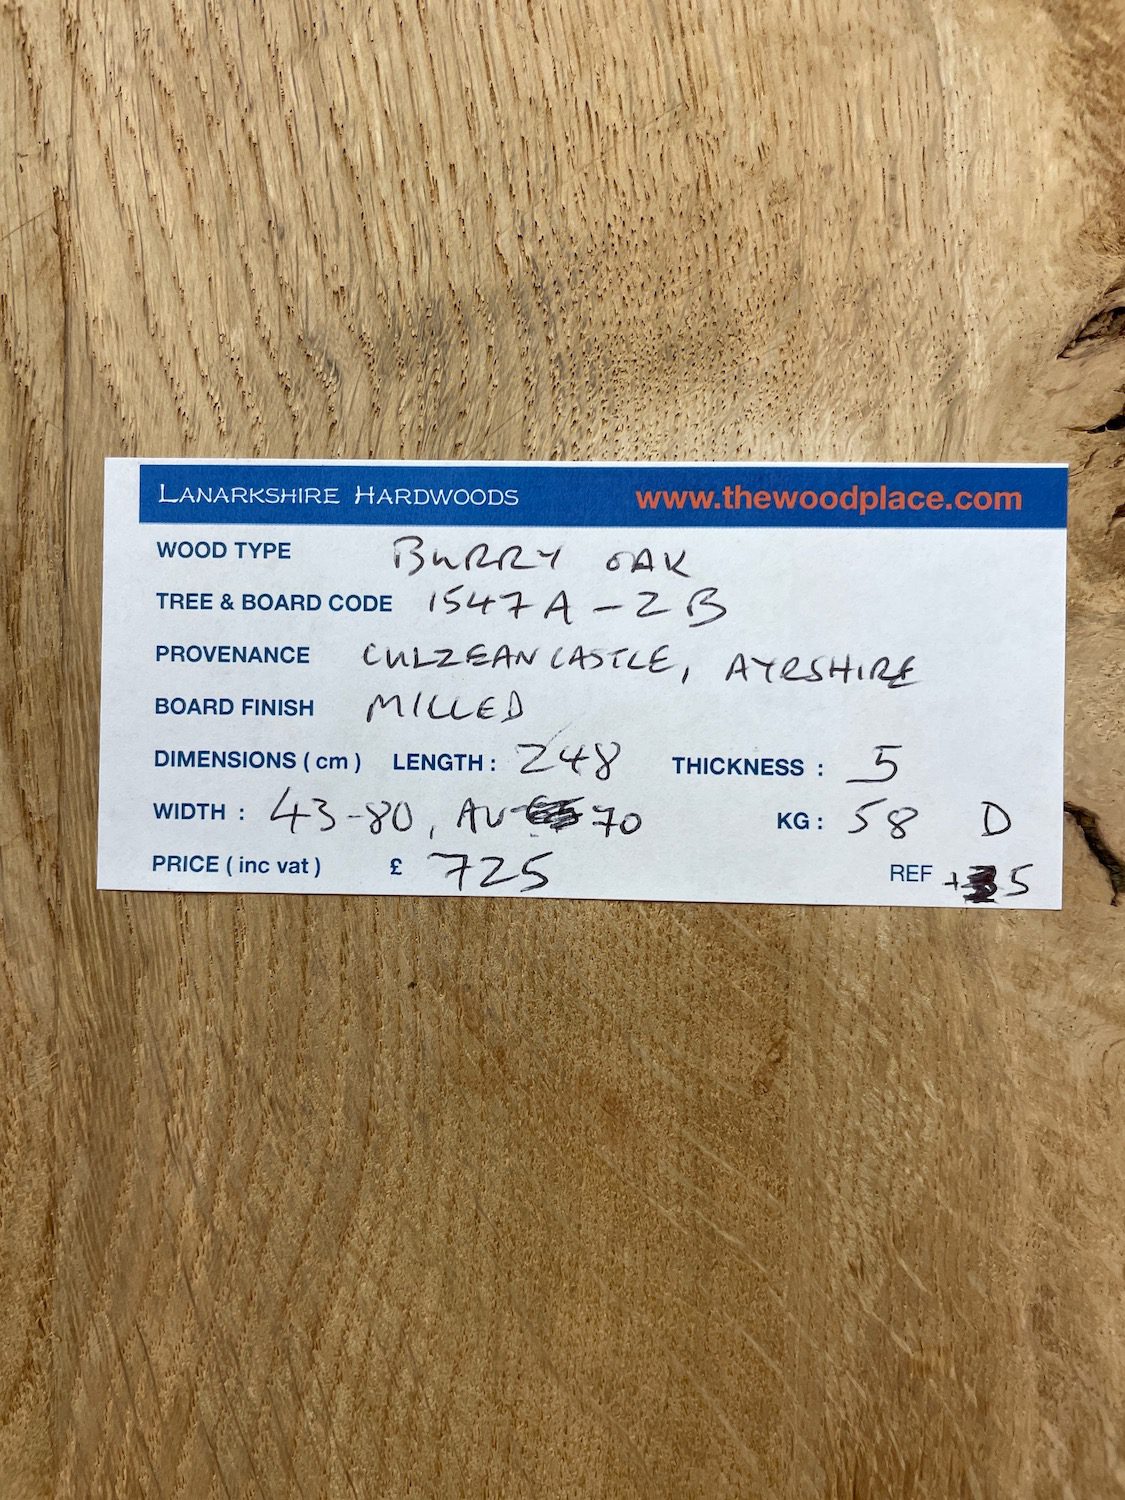 LANARKSHIRE HARDWOODS www.thewoodplace.com
WOOD TYPE BURRY OAK
TREE & BOARD CODE 1547A-2B
PROVENANCE CULZEAN CASTLE, AYRSHIRE
BOARD FINISH MILLED
DIMENSIONS ( cm ) LENGTH : 248 THICKNESS : 5
WIDTH : 43-80, AV 70 KG : 58 D
PRICE ( inc vat ) £ 725 REF + 5